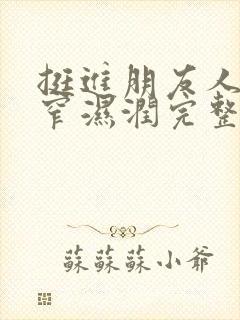 挺进朋友人
窄濕潤完整
蘇蘇蘇小爺